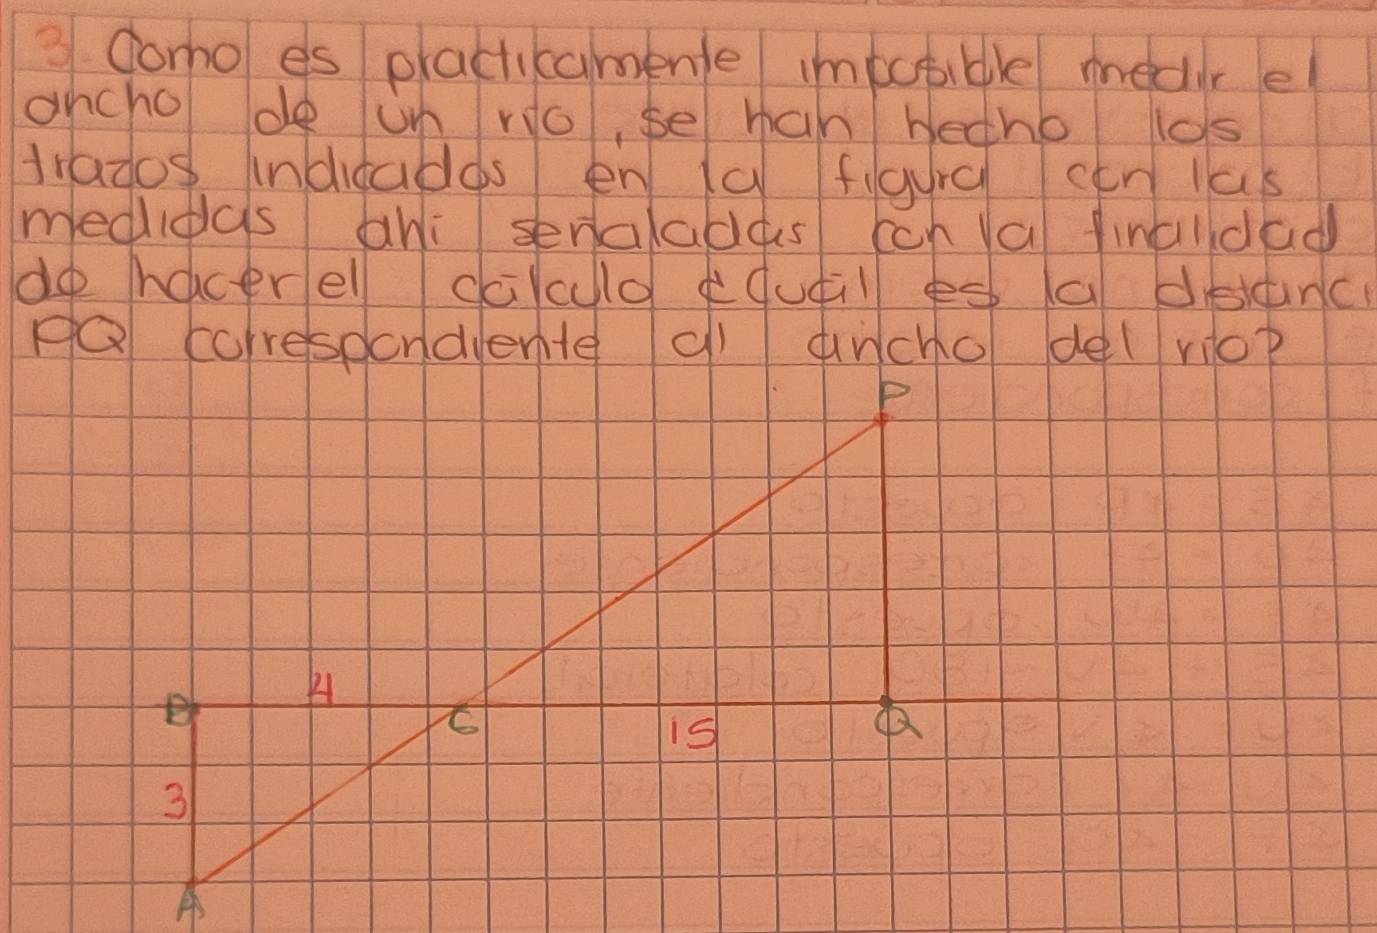 3. Como es practicamente imposible medir el
ancho de un rio, se han hecho los
trazos indicados en la figura con las
medidas ahi señaladas con la finalidad
de hacer el cálculo ¿Cuál es la distanci
PQ correspondiente al ancho del rio?
P
4
B
C
Q
15
3
A